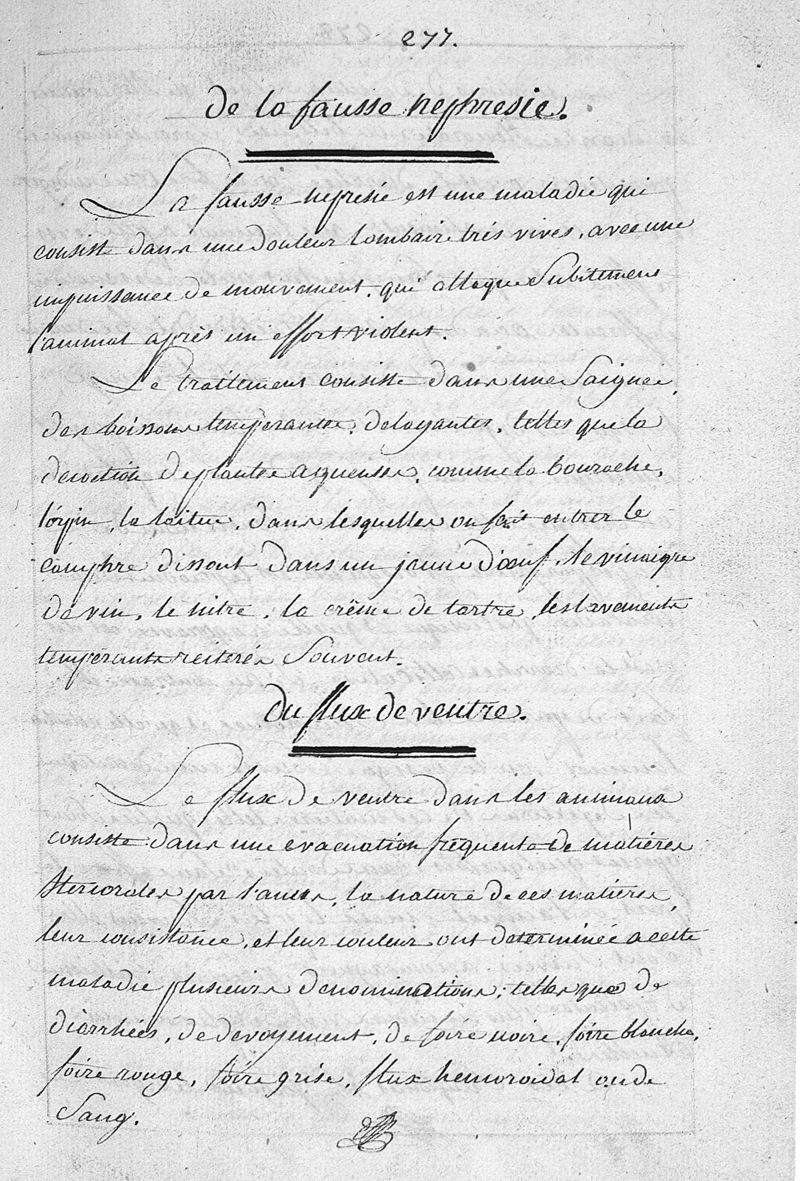 277.
de la fausse nephresie.
La fausse nefresie est une maladie qui
consiste dans une douleur lombaire trés vives, avec une
impuissance de mouvement. qui attaque Subitement
l'animal aprés un effort violent.
Le traittement consiste dans une Saignée,
des boissons temperantes, delayantes, telles que la
decoction de plantes aqueuses, comme la bourache,
l'orpin, la laitue, dans lesquelles on fait entrer le
camphre dissout dans un jaune d'œuf, le vinaigre
de vin, le nitre, la crême de tartre, les lavements
temperants reiterés Souvent.
du flux de ventre.
Le flux de ventre dans les animaux
consiste dans une evacuation frequente de matières
Stercorales par l'anus, la nature de ces matières,
leur consistance, et leur couleur ont determinée a cette
maladie plusieurs denominations; telles que de
diarrhées, de devoyement, de foire noire, foire blanche,
foire rouge, foire grise, flux hemoroidal ou de
Sang.